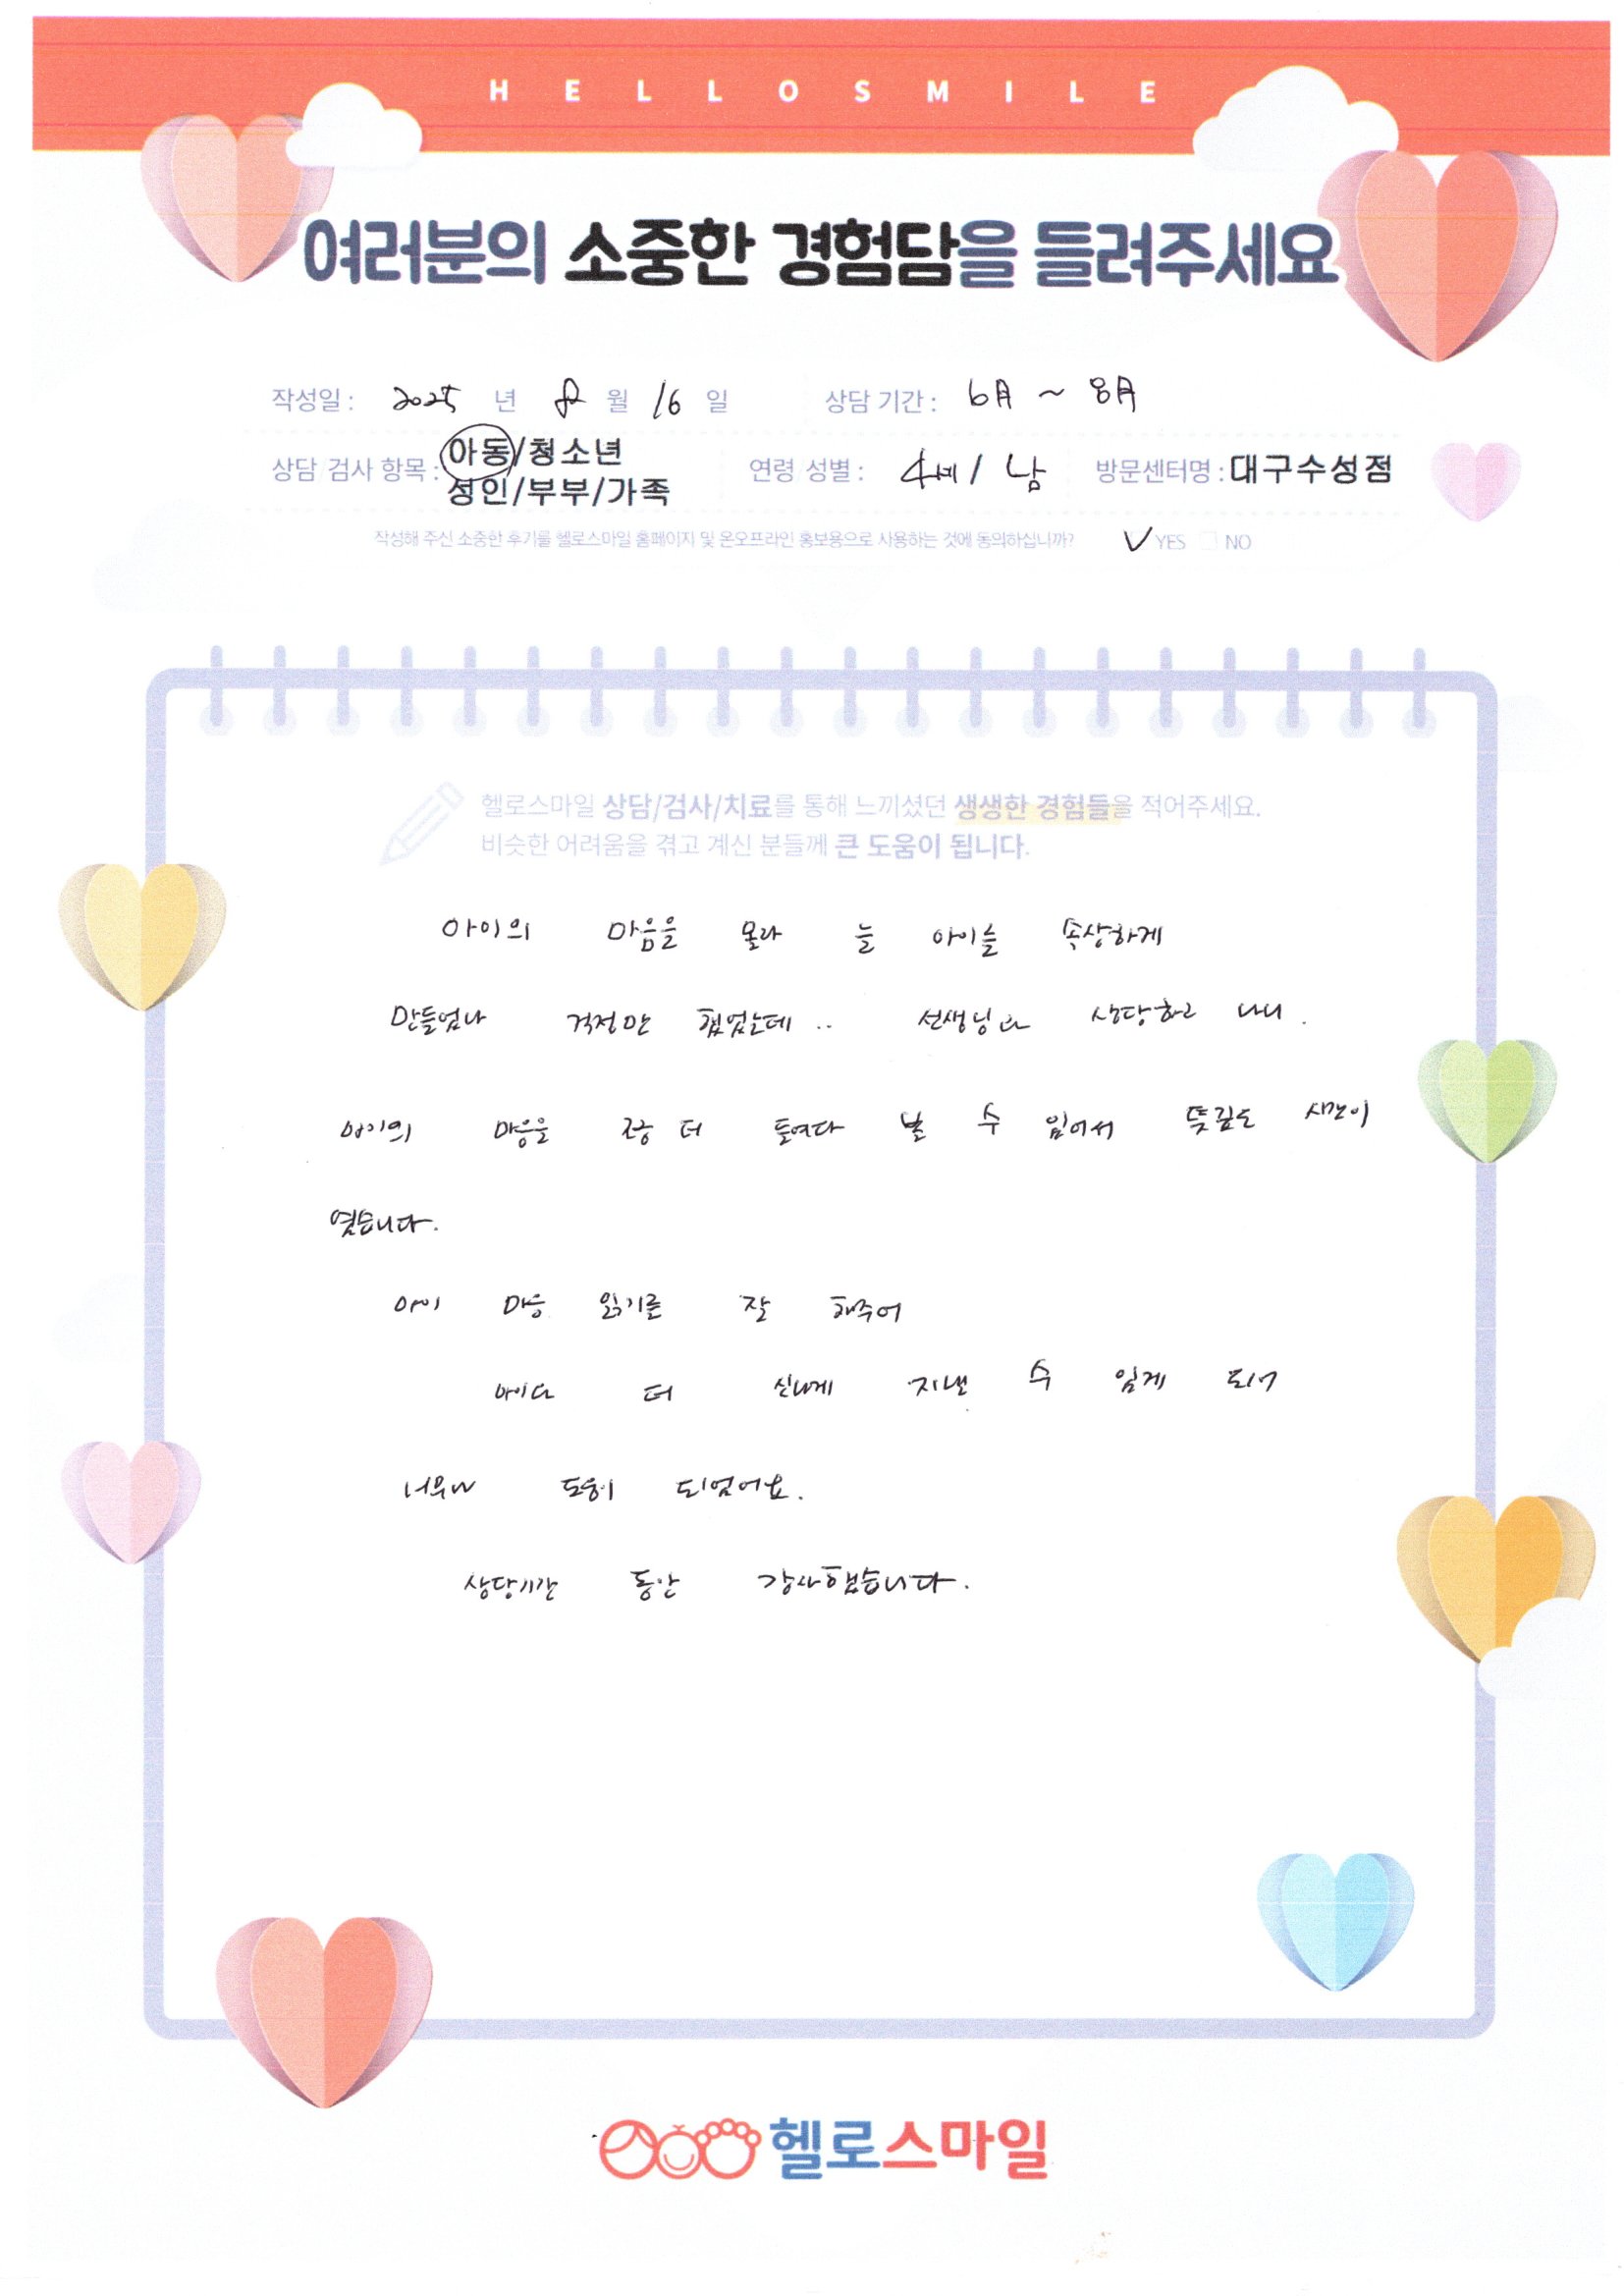 HELLOSMILE
여러분의 소중한 경험담을 들려주세요
작성일 : 2025 년 8 월 16 일 상담 기간 : 6月 ~ 8月
상담/검사 항목 : 아동/청소년
성인/부부/가족
연령/성별 : 4세 / 남 방문센터명 : 대구수성점
작성해 주신 소중한 후기를 헬로스마일 홈페이지 및 온오프라인 홍보용으로 사용하는 것에 동의하십니까? ✓ YES □ NO
헬로스마일 상담/검사/치료를 통해 느끼셨던 생생한 경험들을 적어주세요.
비슷한 어려움을 겪고 계신 분들께 큰 도움이 됩니다.
아이의 마음을 몰라 늘 아이를 속상하게
만들었나 걱정만 했었는데 .. 선생님과 상담하고 나니 .
아이의 마음을 좀 더 들여다 볼 수 있어서 뜻깊은 시간이
였습니다.
아이 마음 읽기를 잘 해주어
아이가 더 신나게 지낼 수 있게 되서
너무나 도움이 되었어요.
상담기간 동안 감사했습니다.
헬로스마일